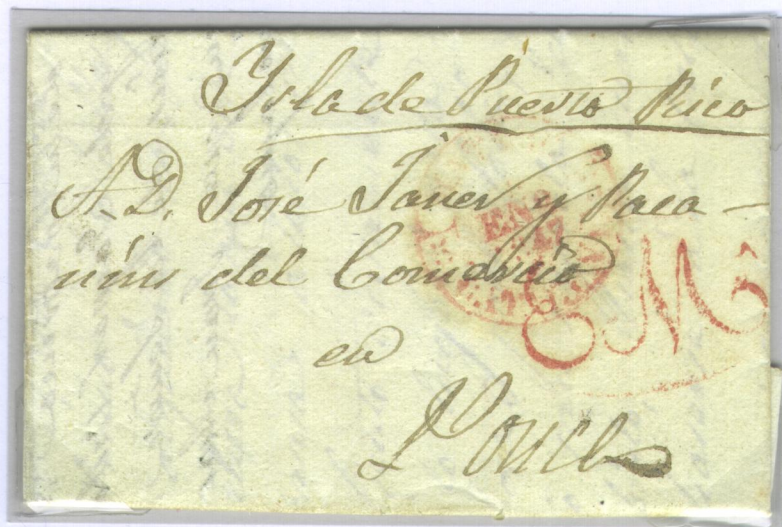 Ysla de Puerto Rico
A. D. José Janer y Paca-
nins del Comercio
en
Ponce
ENE